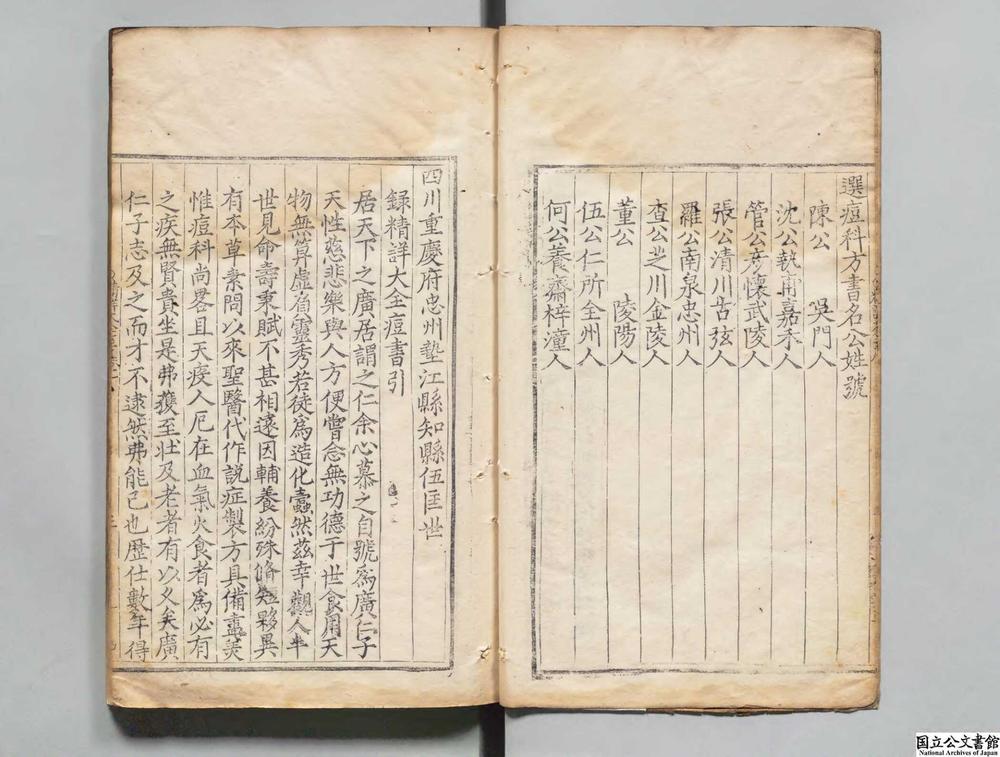 選痘科方書名公姓號
陳公 吳門人
沈公執甫嘉禾人
管公彥懷武陵人
張公清川古弦人
羅公南泉忠州人
查公芝川金陵人
董公 陵陽人
伍公仁所全州人
何公養齋梓潼人
四川重慶府忠州墊江縣知縣伍匡世
録精詳大全痘書引
居天下之廣居謂之仁余心慕之自號爲廣仁子
天性慈悲樂與人方便嘗念無功德于世食用天
物無算虛負靈秀若徒爲造化蠹然茲幸觀人半
世見命壽稟賦不甚相遠因輔養紛殊脩短夥異
有本草素問以來聖醫代作説症製方具備盡美
惟痘科尚畧且天疫人厄在血氣火食者爲必有
之疾無賢貴坐是弗獲至壯及老者有以久矣廣
仁子志及之而才不逮然弗能已也歷仕數年得
国立公文書館
National Archives of Japan